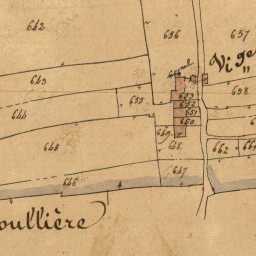 642
656
657
Vige
643
658
655
653
652
651
650
644
649
648
662
645
647
646
oullière